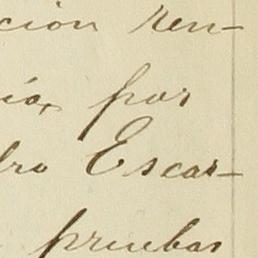 ción ren-
ía, por
dro Escar-
pruebas